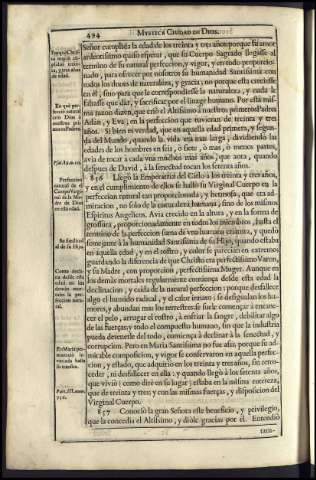 494
MYSTICA CIUDAD DE DIOS.
Señor cumplida la edad de los treinta y tres años; porque su amor
ardentissimo quiso esperar, que su Cuerpo Sagrado llegasse al
termino de su natural perfeccion, y vigor, y en todo proporcio-
nado, para ofrecer por nosotros su humanidad Santissima con
todos los dones de naturaleza, y gracia; no porque esta creciesse
en èl, sino para que le correspondiesse la naturaleza, y nada le
faltasse que dar, y sacrificar por el linage humano. Por esta mis-
ma razon
que criò el Altissimo à nuestros primeros Padres
Adan, y Eva, en la perfeccion que tuvieran de treinta y tres
años. Si bien es verdad, que en aquella edad primera, y segun-
da del Mundo, quando la vida era mas larga, dividiendo las
edades de los hombres en seis, ò siete, ò mas, ò menos partes,
avia de tocar à cada vna muchos mas años, que aora, quando
despues de David, à la senectud tocan los setenta años.
856 Llegò la Emperatriz del Cielo à los treinta y tres años,
y en el cumplimiento de ellos se hallò su Virginal Cuerpo en la
perfeccion natural tan proporcionada, y hermosa, que era ad-
miracion, no solo de la naturaleza humana, sino de los mismos
Espiritus Angelicos. Avia crecido en la altura, y en la forma de
grossura, proporcionadamente en todos los miembros, hasta el
termino de la perfeccion suma de vna humana criatura, y quedò
semejante à la humanidad Santissima de su Hijo, quando estaba
en aquella edad, y en el rostro, y color se parecian en extremo,
guardando la diferencia de que Christo era perfectissimo Varon,
y su Madre, con proporcion, perfectissima Muger. Aunque en
los demàs mortales regularmente comiença desde esta edad la
declinacion, y caìda de la natural perfeccion: porque desfallece
algo el humido radical, y el calor innato; se desigualan los hu-
mores, y abundan mas los terrestres; se suele començar à encane-
cer el pelo, arrugar el rostro, à enfriar la sangre, debilitar algo
de las fuerças; y todo el compuesto humano, sin que la industria
pueda detenerle del todo, comiença à declinar à la senectud, y
corrupcion. Pero en Maria Santissima no fue assi, porque su ad-
mirable composicion, y vigor se conservaron en aquella perfec-
cion, y estado, que adquirio en los treinta y tres años, sin retro-
ceder, ni desfallecer en ella: y quando llegò à los setenta años,
que viviò (como dirè en su lugar) estaba en la misma entereza,
que de treinta y tres; y con las mismas fuerças, y disposicion del
Virginal Cuerpo.
857 Conociò la gran Señora este beneficio, y privilegio,
que la concedia el Altissimo, y diòle gracias por èl. Entendiò
Psal. 89. v. 10.
Perfeccion
natural de el
Cuerpo Virgi-
nal de la Ma-
dre de Dios
en esta edad.